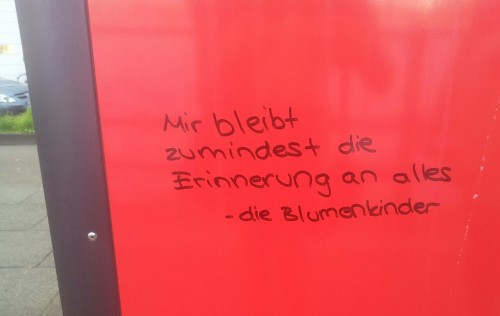 Mir bleibt
zumindest die
Erinnerung an alles
- die Blumenkinder